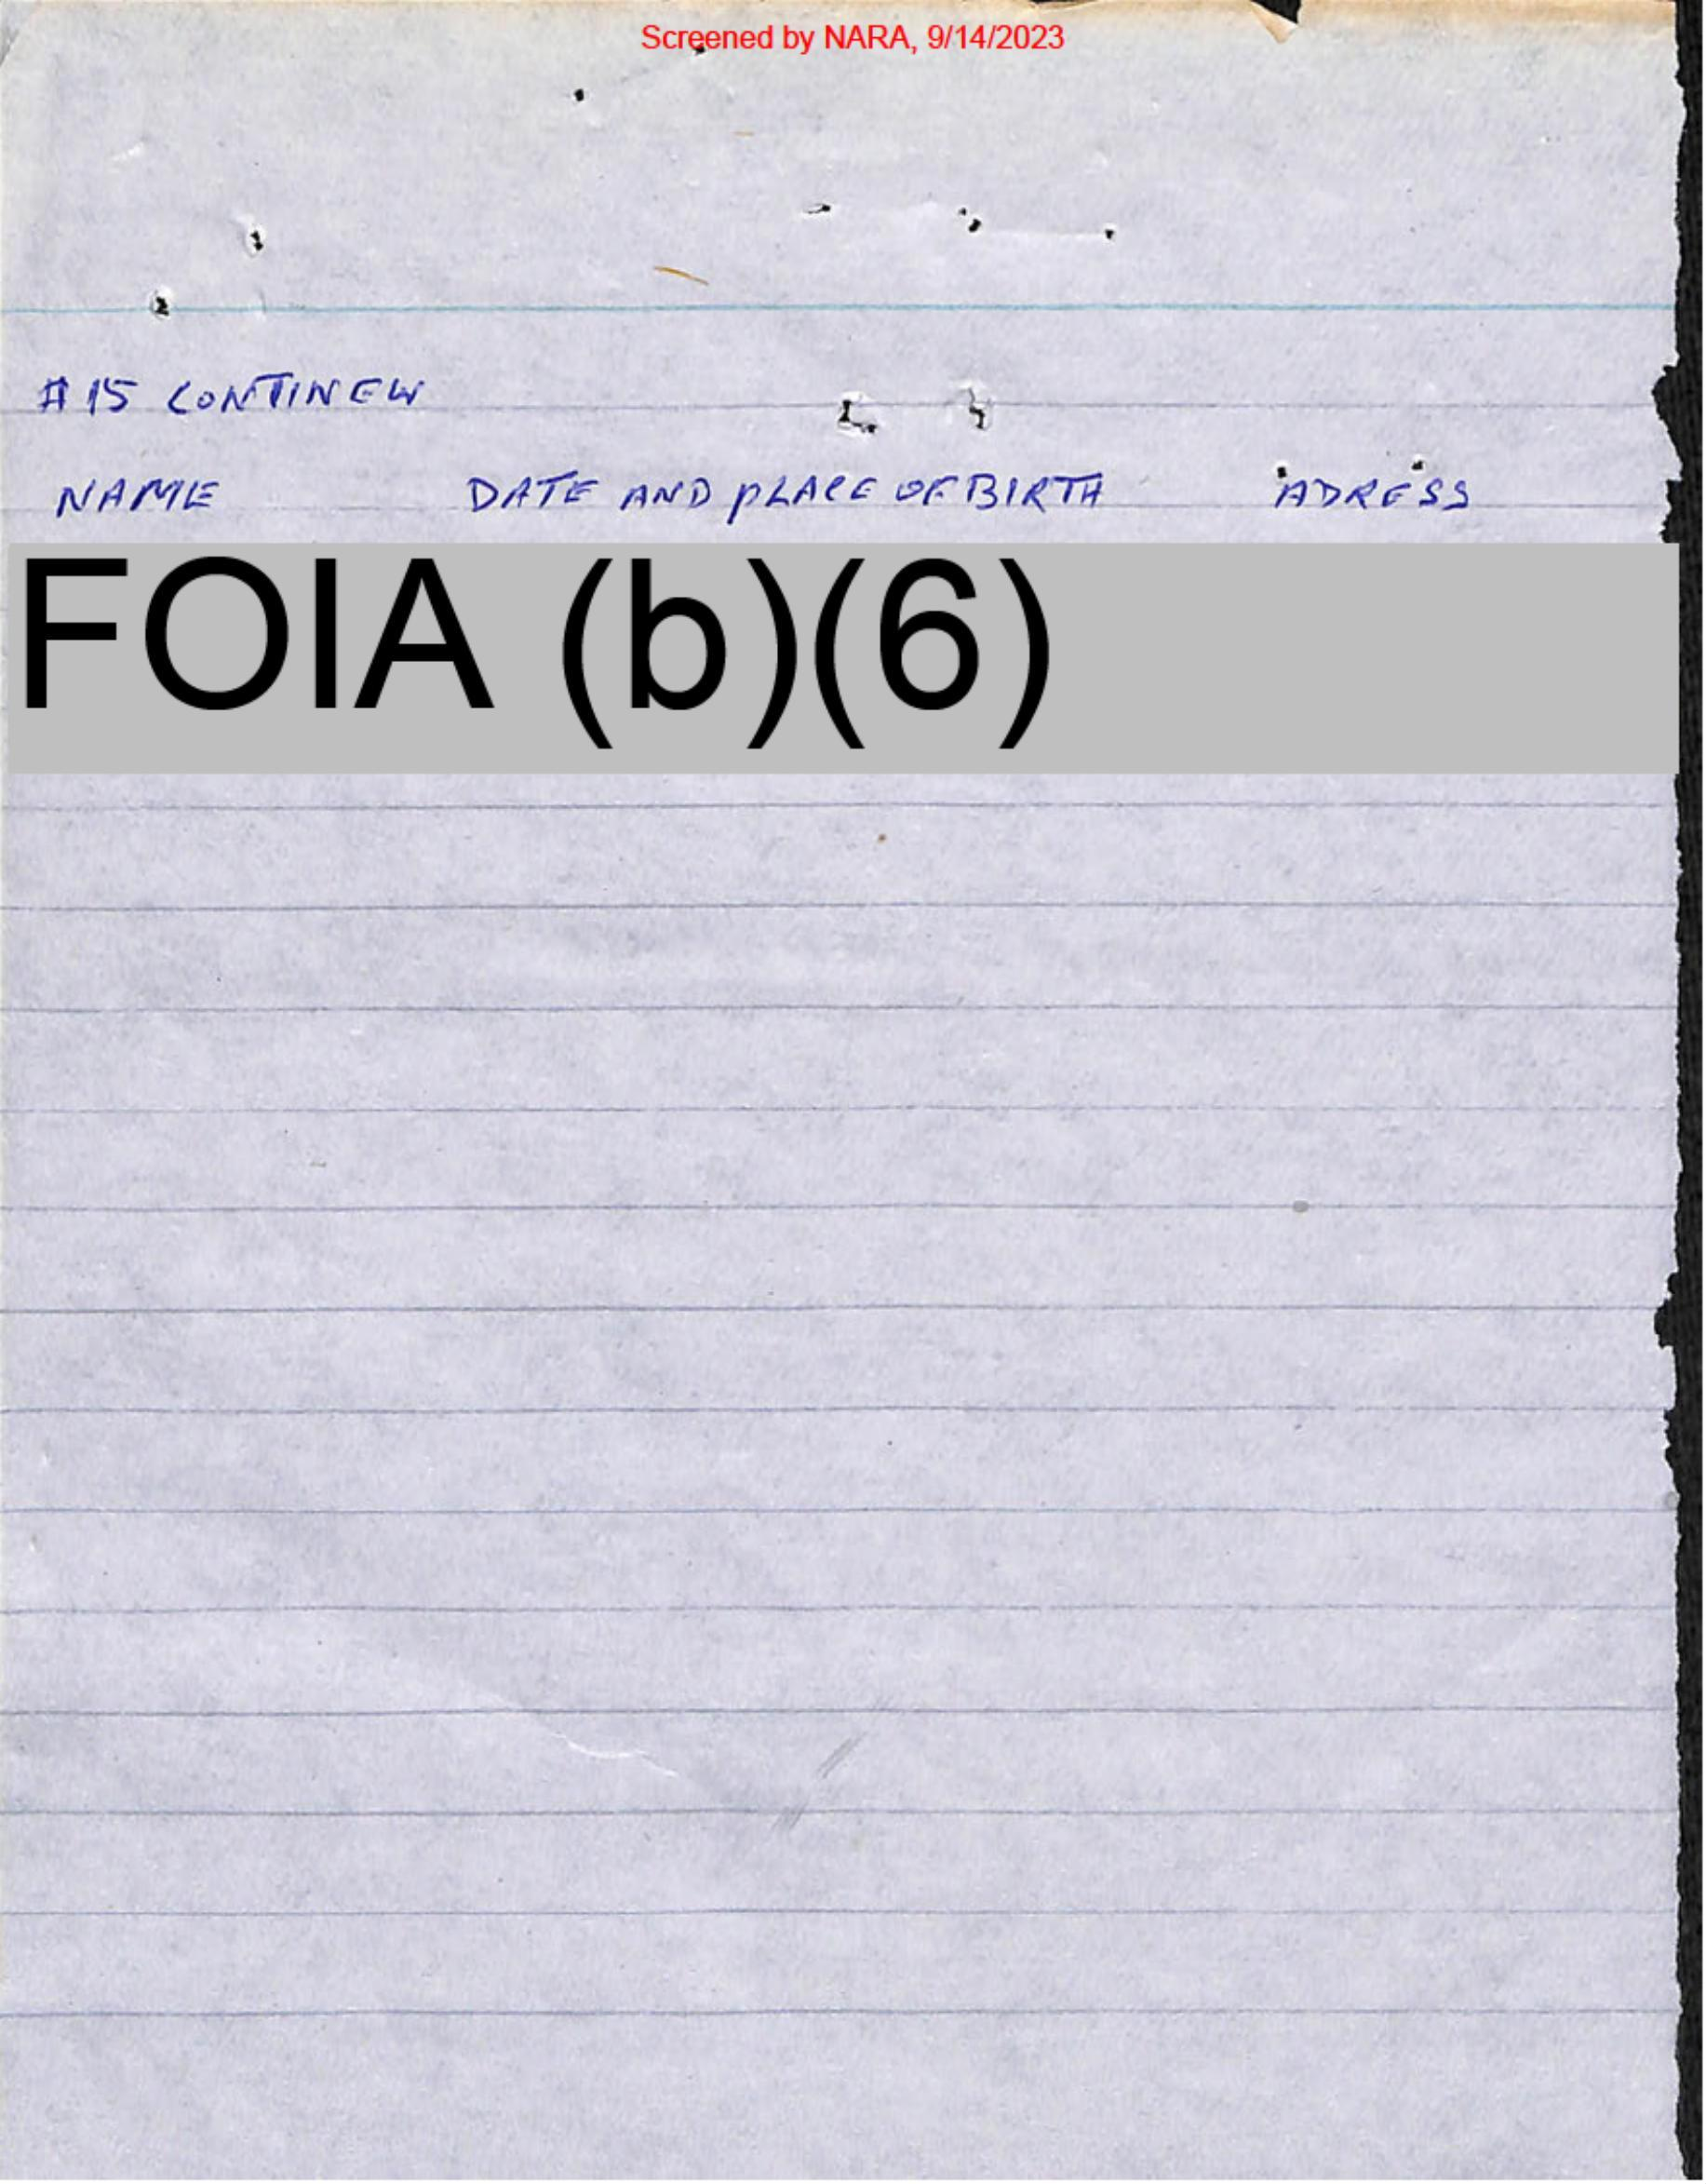 Screened by NARA, 9/14/2023
#15 CONTINEW
NAME DATE AND PLACE OF BIRTH ADRESS
FOIA (b)(6)